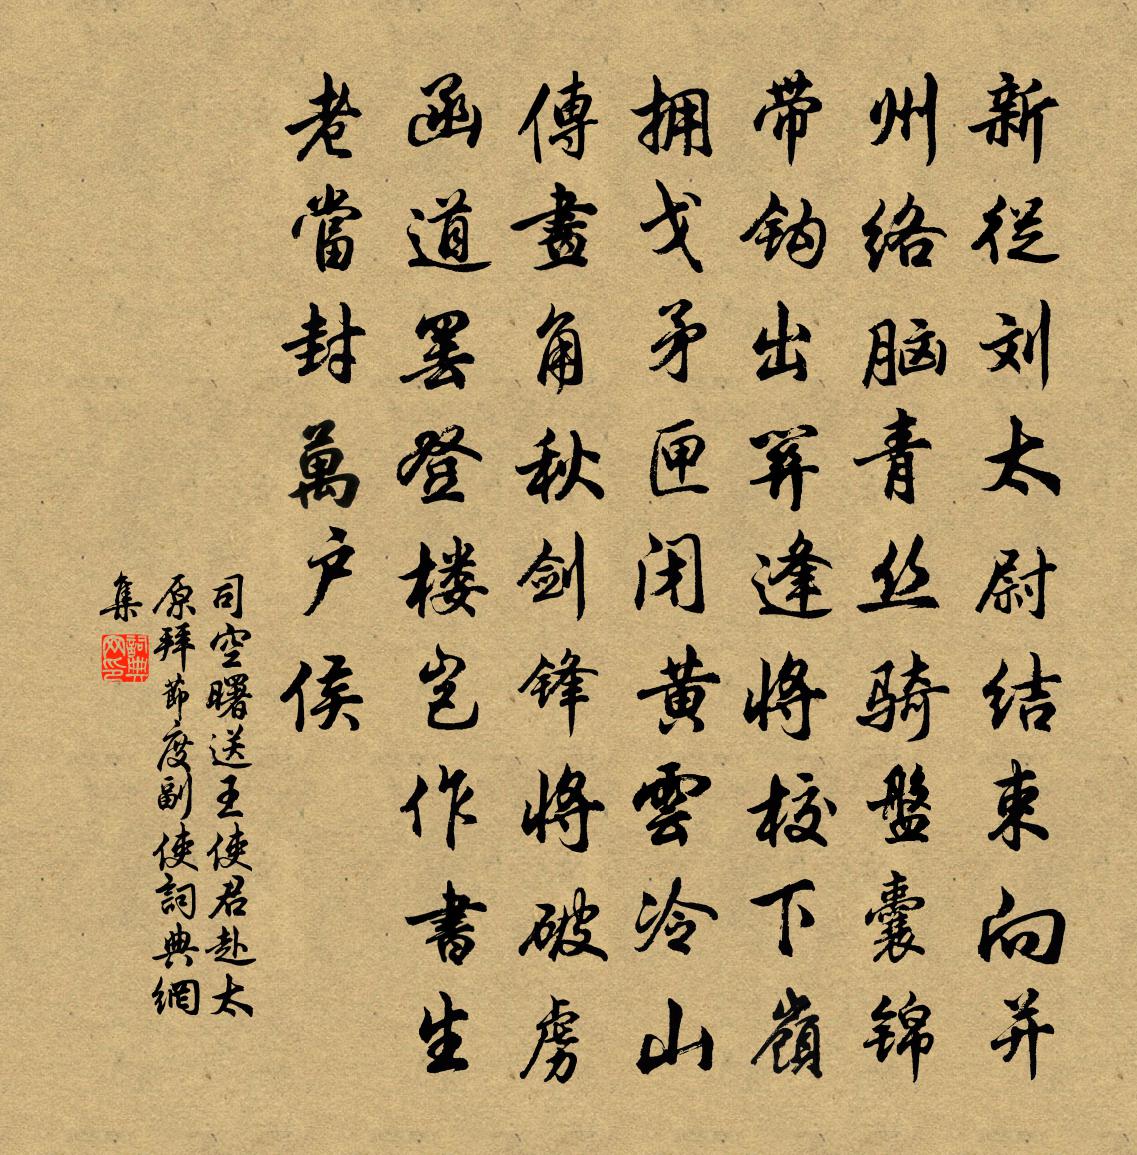 新從刘太尉结束向并
州络脑青丝骑盤囊锦
带钩出關逢將校下嶺
拥戈矛匣闭黄雲冷山
傳畫角秋剑锋將破虏
函道罢登楼岂作書生
老當封萬户侯
司空曙送王使君赴太
原拜節度副使詞典網
集
詞典
网印